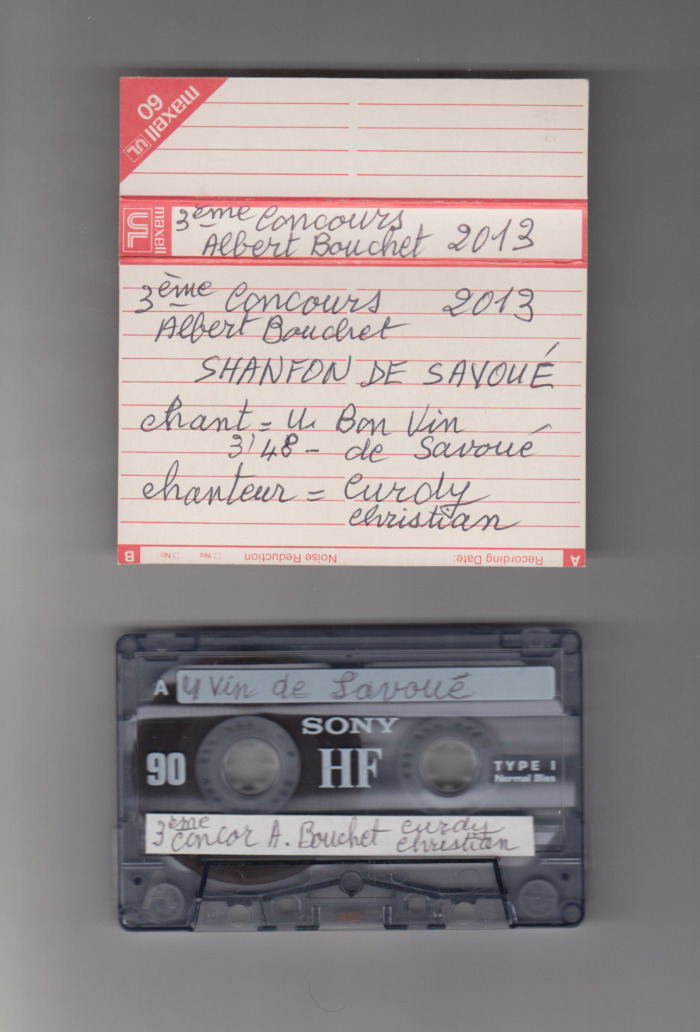 maxell 60
UL
maxell
UL
3ème Concours
Albert Bouchet 2013
3ème Concours 2013
Albert Bouchet
SHANFON DE SAVOUÉ
chant = U Bon Vin
3'48 - de Savoué
chanteur = Curdy
christian
A Recording Date: Noise Reduction Yes No B
A U Vin de Savoué
SONY
90 HF TYPE I
Normal Bias
3ème concor A. Bouchet curdy
christian